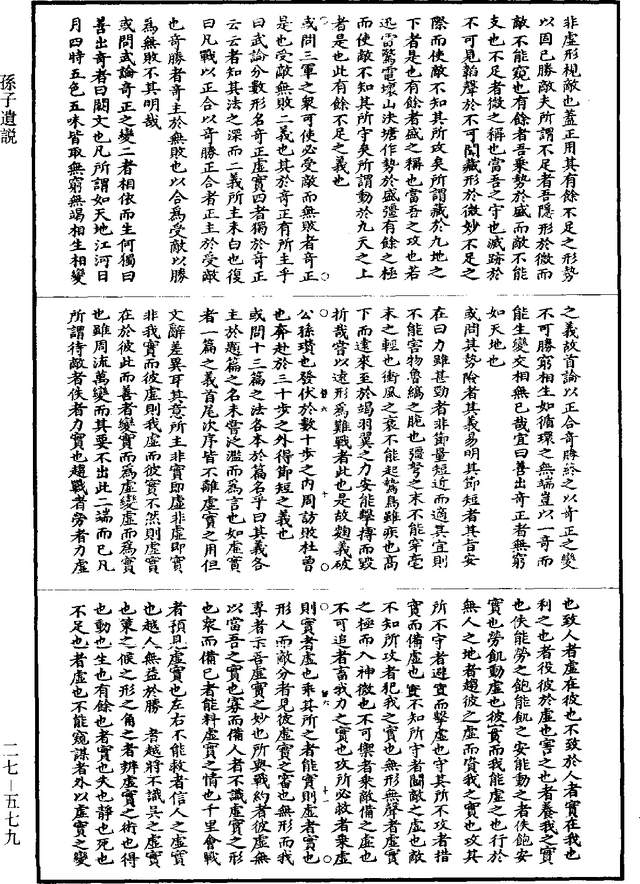 非虛形視敵也蓋正用其有餘不足之形勢
以固己勝敵夫所謂不足者吾隱形於微而
敵不能窺也有餘者吾乘勢於盛而敵不能
支也不足者微之稱也當吾之守也滅跡於
不可見韜聲於不可聞藏形於微妙不足之
際而使敵不知其所攻矣所謂藏於九地之
下者是也有餘者盛之稱也當吾之攻也若
迅雷驚電壞山決塘作勢於盛彊有餘之極
而使敵不知其所守矣所謂動於九天之上
者是也此有餘不足之義也
或問三軍之衆可使必受敵而無敗者奇正
是也受敵無敗二義也其於奇正有所主乎
曰武論分數形名奇正虛實四者獨於奇正
云云者知其法之深而二義所主未白也復
曰凡戰以正合以奇勝正合者正主於受敵
也奇勝者奇主於無敗也以合為受敵以勝
為無敗不其明哉
或問武論奇正之變二者相依而生何獨曰
善出奇者曰闕文也凡所謂如天地江河日
月四時五色五味皆取無窮無竭相生相變
之義故首論以正合奇勝終之以奇正之變
不可勝窮相生如循環之無端豈以一奇而
能生變交相無已哉宜曰善出奇正者無窮
如天地也
或問其勢險者其義易明其節短者其旨安
在曰力雖甚勁者非節量短近而適其宜則
不能害物魯縞之脆也彊弩之末不能穿毫
末之輕也衝風之衰不能起鷙鳥雖疾也高
下而遠來至於竭羽翼之力安能擊搏而毀
折哉嘗以遠形為難戰者此也是故麴義破
公孫瓚也發伏於數十步之內周訪敗杜曾
也奔赴於三十步之外得節短之義也
或問十三篇之法各本於篇名乎曰其義各
主於題篇之名未嘗泛濫而為言也如虛實
者一篇之義首尾次序皆不離虛實之用但
文辭差異耳其意所主非實即虛非虛即實
非我實而彼虛則我虛而彼實不然則虛實
在於彼此而善者變實而為虛變虛而為實
也雖周流萬變而其要不出此二端而已凡
所謂待敵者佚者力實也趨戰者勞者力虛
也致人者虛在彼也不致於人者實在我也
利之也者役彼於虛也害之也者養我之實
也佚能勞之飽能飢之安能動之者佚飽安
實也勞飢動虛也彼實而我能虛之也行於
無人之地者趨彼之虛而資我之實也攻其
所不守者避實而擊虛也守其所不攻者措
實而備虛也不知所守者鬬敵之虛也敵
不知所攻者犯我之實也無形無聲者虛實
之極而入神微也不可禦者乘敵備之虛也
不可追者畜我力之實也攻所必救者乘虛
則實者虛也乖其所之者能實則虛者實也
形人而敵分者見彼虛實之審也無形而我
專者示吾虛實之妙也所與戰約者彼虛無
以當吾之實也寡而備人者不識虛實之形
也衆而備己者能料虛實之情也千里會戰
者預見虛實也左右不能救者信人之虛實
也越人無益於勝者越將不識吳之虛實
也策之候之形之角之者辨虛實之術也得
也動也生也有餘也者實也失也靜也死也
不足也者虛也不能窺謀者外以虛實之變
孫子遺説
二七—五七九